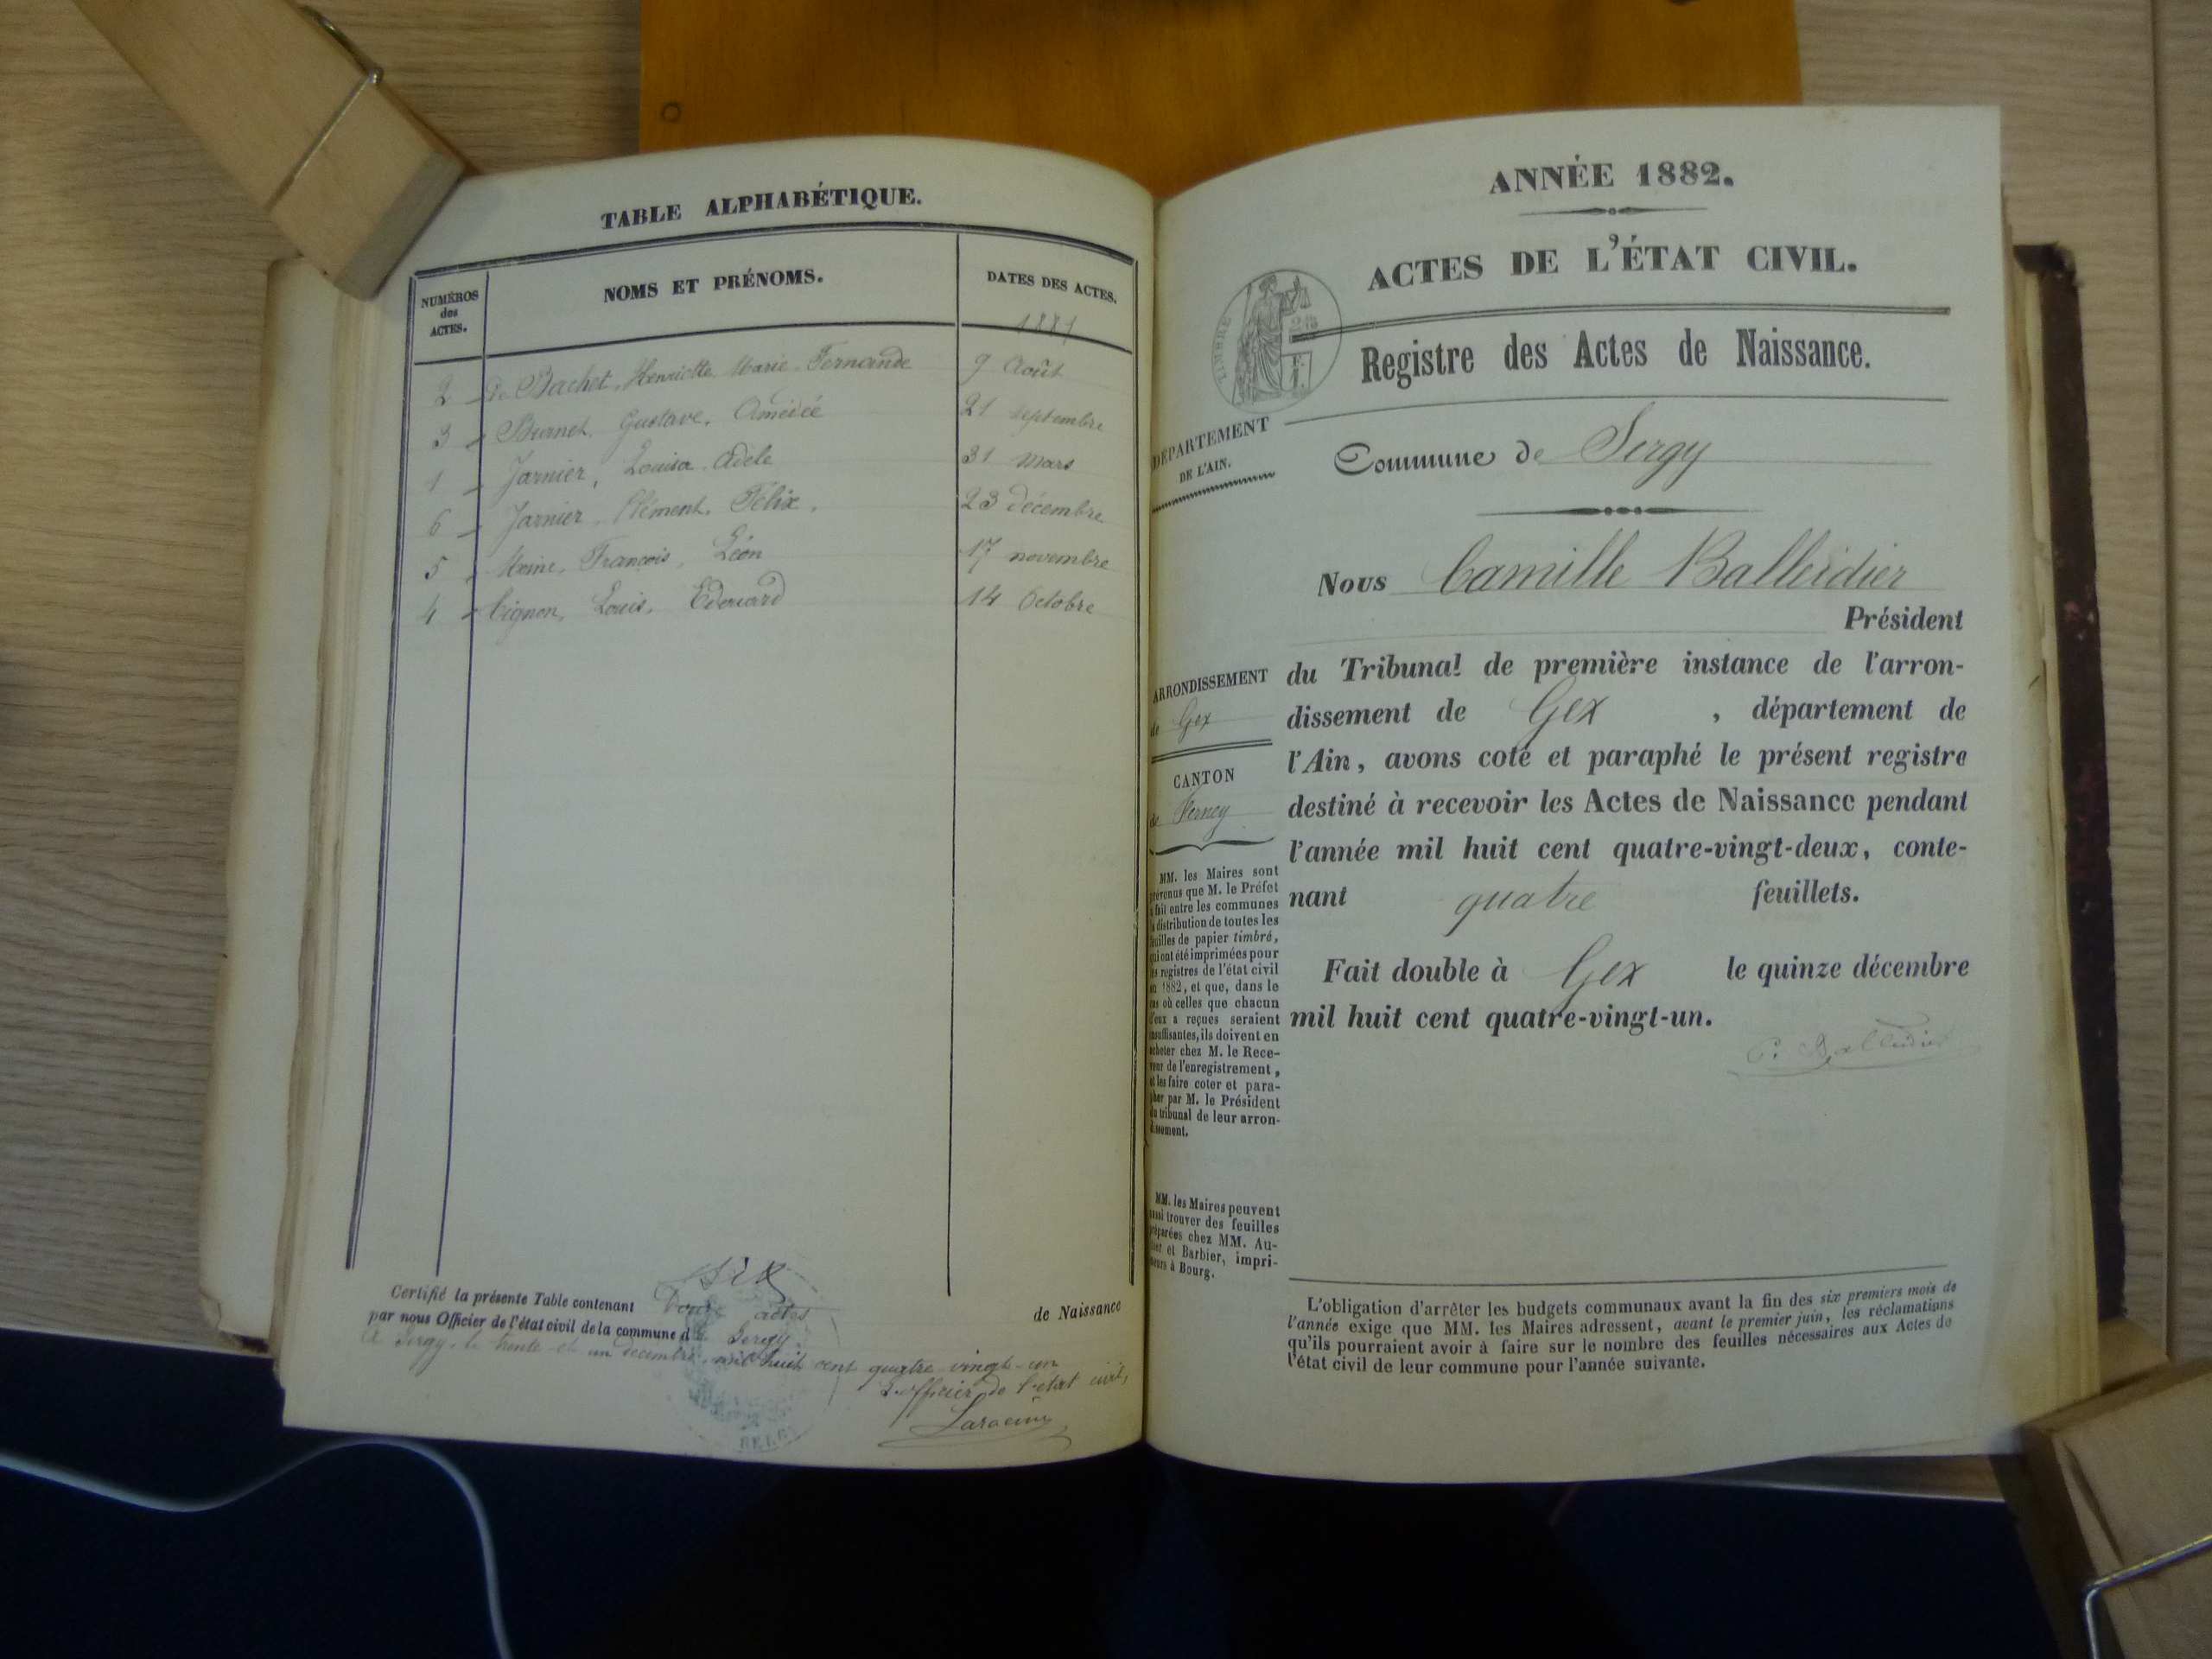 TABLE ALPHABÉTIQUE.
NUMÉROS
des
ACTES.
NOMS ET PRÉNOMS.
DATES DES ACTES.
1881
2 De Bachet, Henriette Marie Fernande 9 Août
3 Brunet, Gustave, Amédée 21 septembre
1 Jarnier, Louisa Adèle 31 Mars
6 Jarnier, Clément, Félix, 23 décembre
5 François, Léon 17 novembre
4 Louis, Edouard 14 Octobre
Certifié la présente Table contenant six actes de Naissance
par nous Officier de l'état civil de la commune de Sergy
A Sergy, le trente et un décembre mil huit cent quatre vingt-un
L'officier de l'état civil,
Laracine
ANNÉE 1882.
ACTES DE L'ÉTAT CIVIL.
TIMBRE
Registre des Actes de Naissance.
DÉPARTEMENT
DE L'AIN.
Commune de Sergy
Nous Camille Balleidier
Président
ARRONDISSEMENT
de Gex
CANTON
de Ferney
du Tribunal de première instance de l'arron-
dissement de Gex, département de
l'Ain, avons coté et paraphé le présent registre
destiné à recevoir les Actes de Naissance pendant
l'année mil huit cent quatre-vingt-deux, conte-
nant quatre feuillets.
Fait double à Gex le quinze décembre
mil huit cent quatre-vingt-un.
C. Balleidier
MM. les Maires sont
prévenus que M. le Préfet
a fait entre les communes
la distribution de toutes les
feuilles de papier timbré,
qui ont été imprimées pour
les registres de l'état civil
en 1882, et que, dans le
cas où celles que chacun
d'eux a reçues seraient
insuffisantes, ils doivent en
acheter chez M. le Rece-
veur de l'enregistrement,
et les faire coter et para-
pher par M. le Président
du tribunal de leur arron-
dissement.
MM. les Maires peuvent
aussi trouver des feuilles
préparées chez MM. Au-
et Barbier, impri-
meurs à Bourg.
L'obligation d'arrêter les budgets communaux avant la fin des six premiers mois de
l'année exige que MM. les Maires adressent, avant le premier juin, les réclamations
qu'ils pourraient avoir à faire sur le nombre des feuilles nécessaires aux Actes de
l'état civil de leur commune pour l'année suivante.